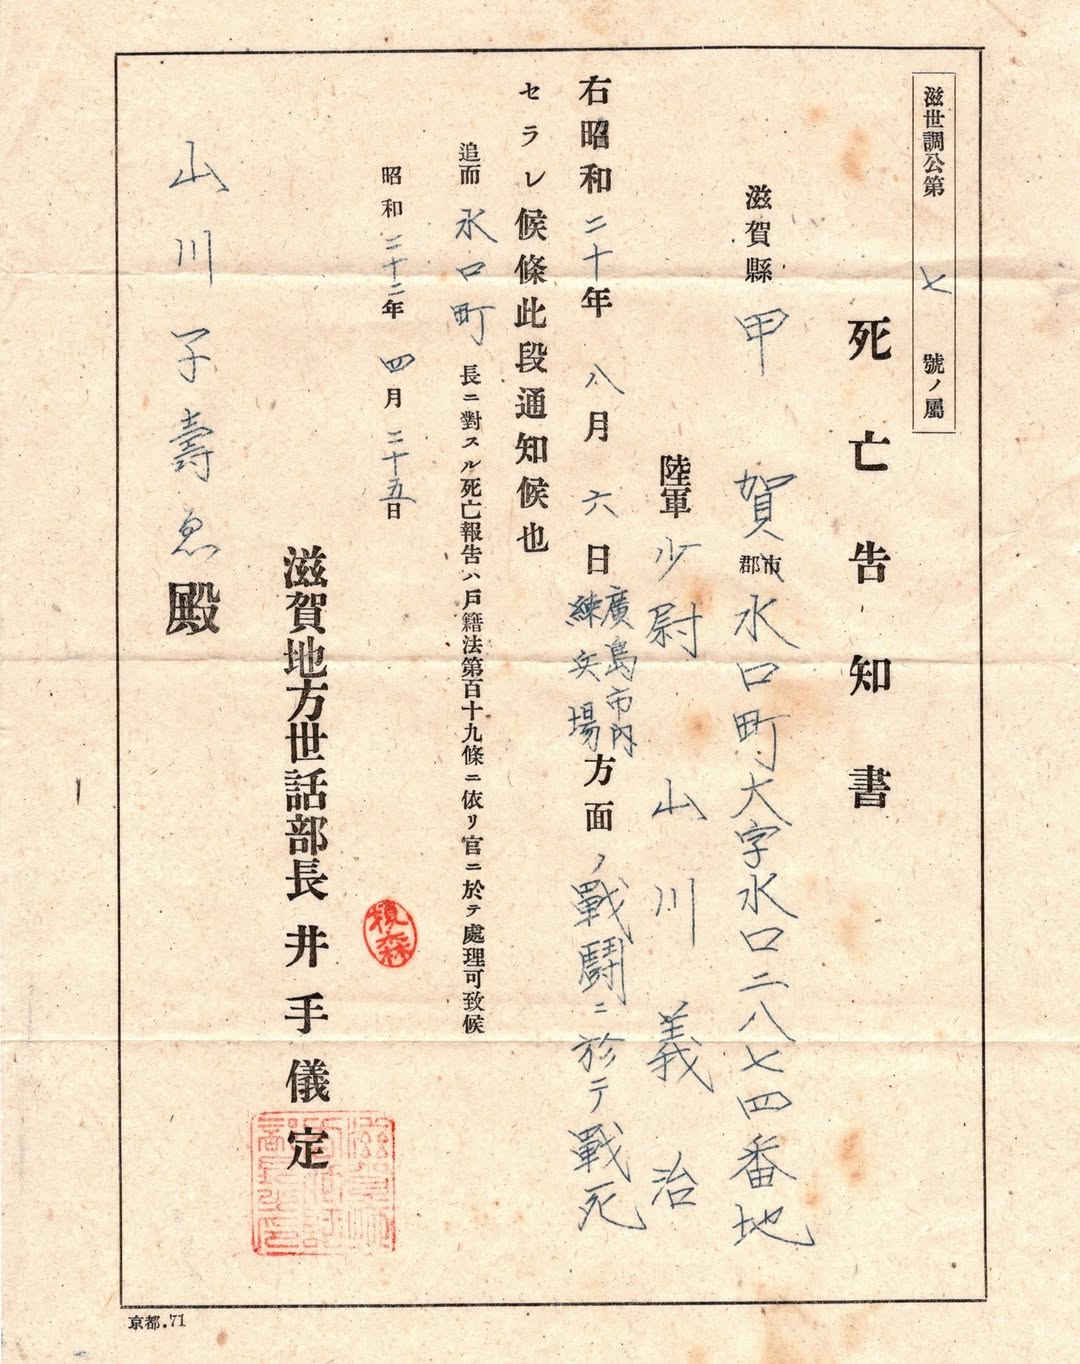 滋世調公第七號ノ屬
死亡告知書
滋賀縣甲賀市郡水口町大字水口二八七四番地
陸軍少尉山川義治
右昭和二十年八月六日廣島市内練兵場方面ノ戰鬪ニ於テ戰死
セラレ候條此段通知候也
追而水口町長ニ對スル死亡報告ハ戸籍法第百十九條ニ依リ官ニ於テ處理可致候
昭和二十二年四月二十五日
滋賀地方世話部長井手儀定
山川子壽恵殿
京都.71